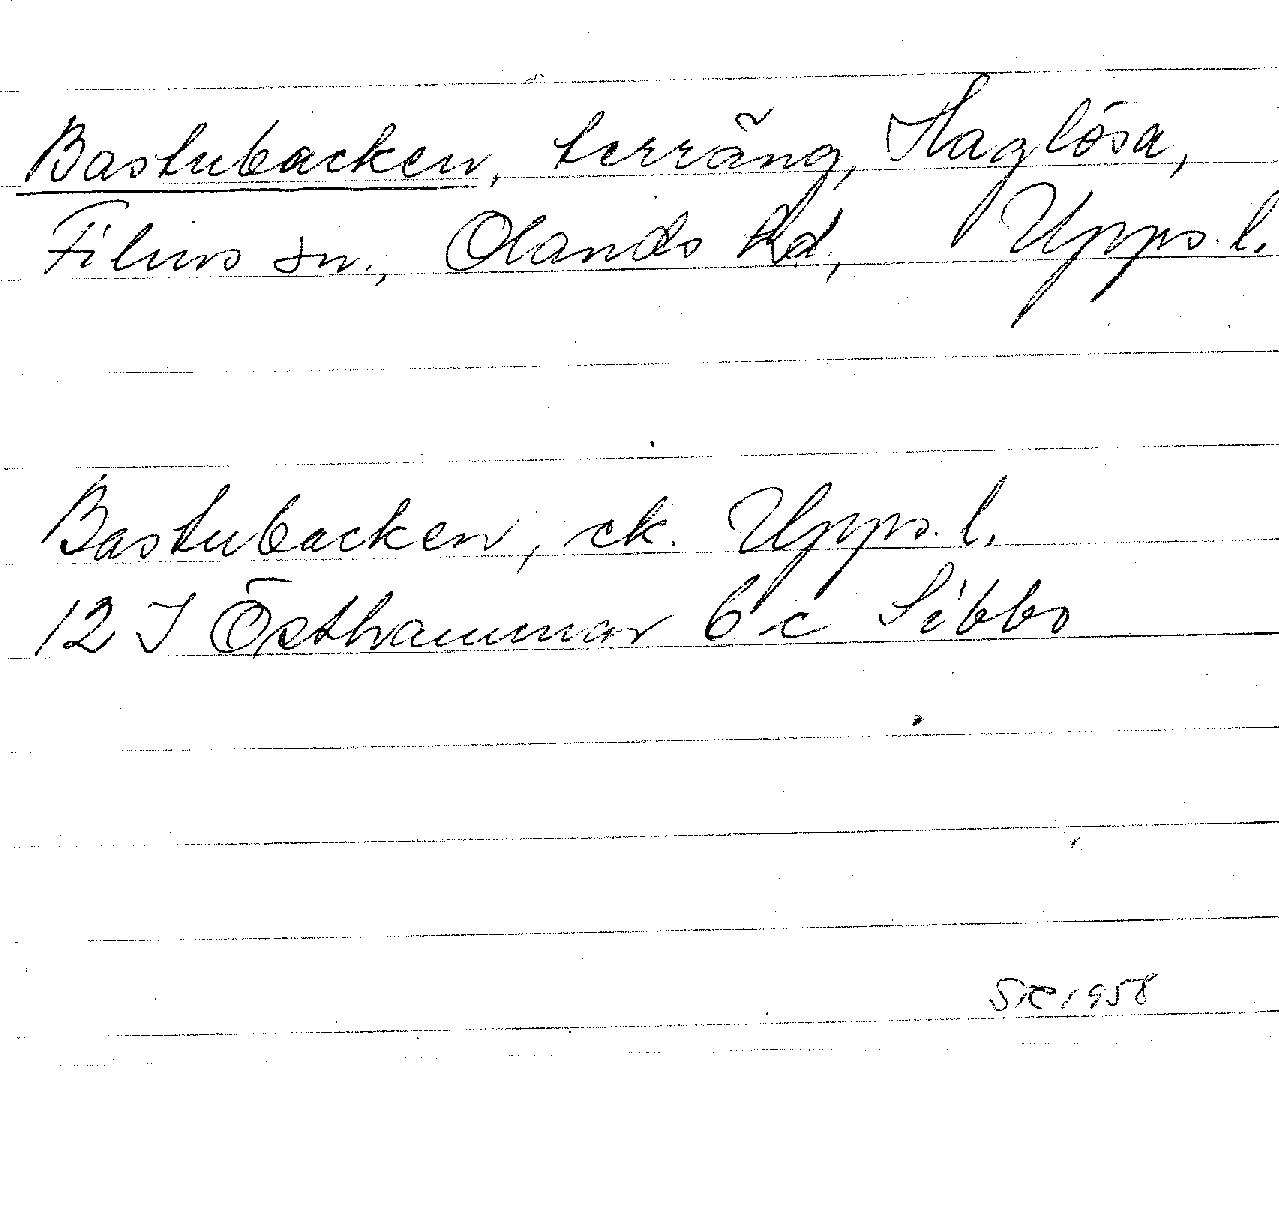 Bastubacken, terräng, Haglösa,
Films sn., Olands hd, Upps. l.
Bastubacken, ek. Upps. l.
12 I Östhammar 6 c Sibbo
SK 1958